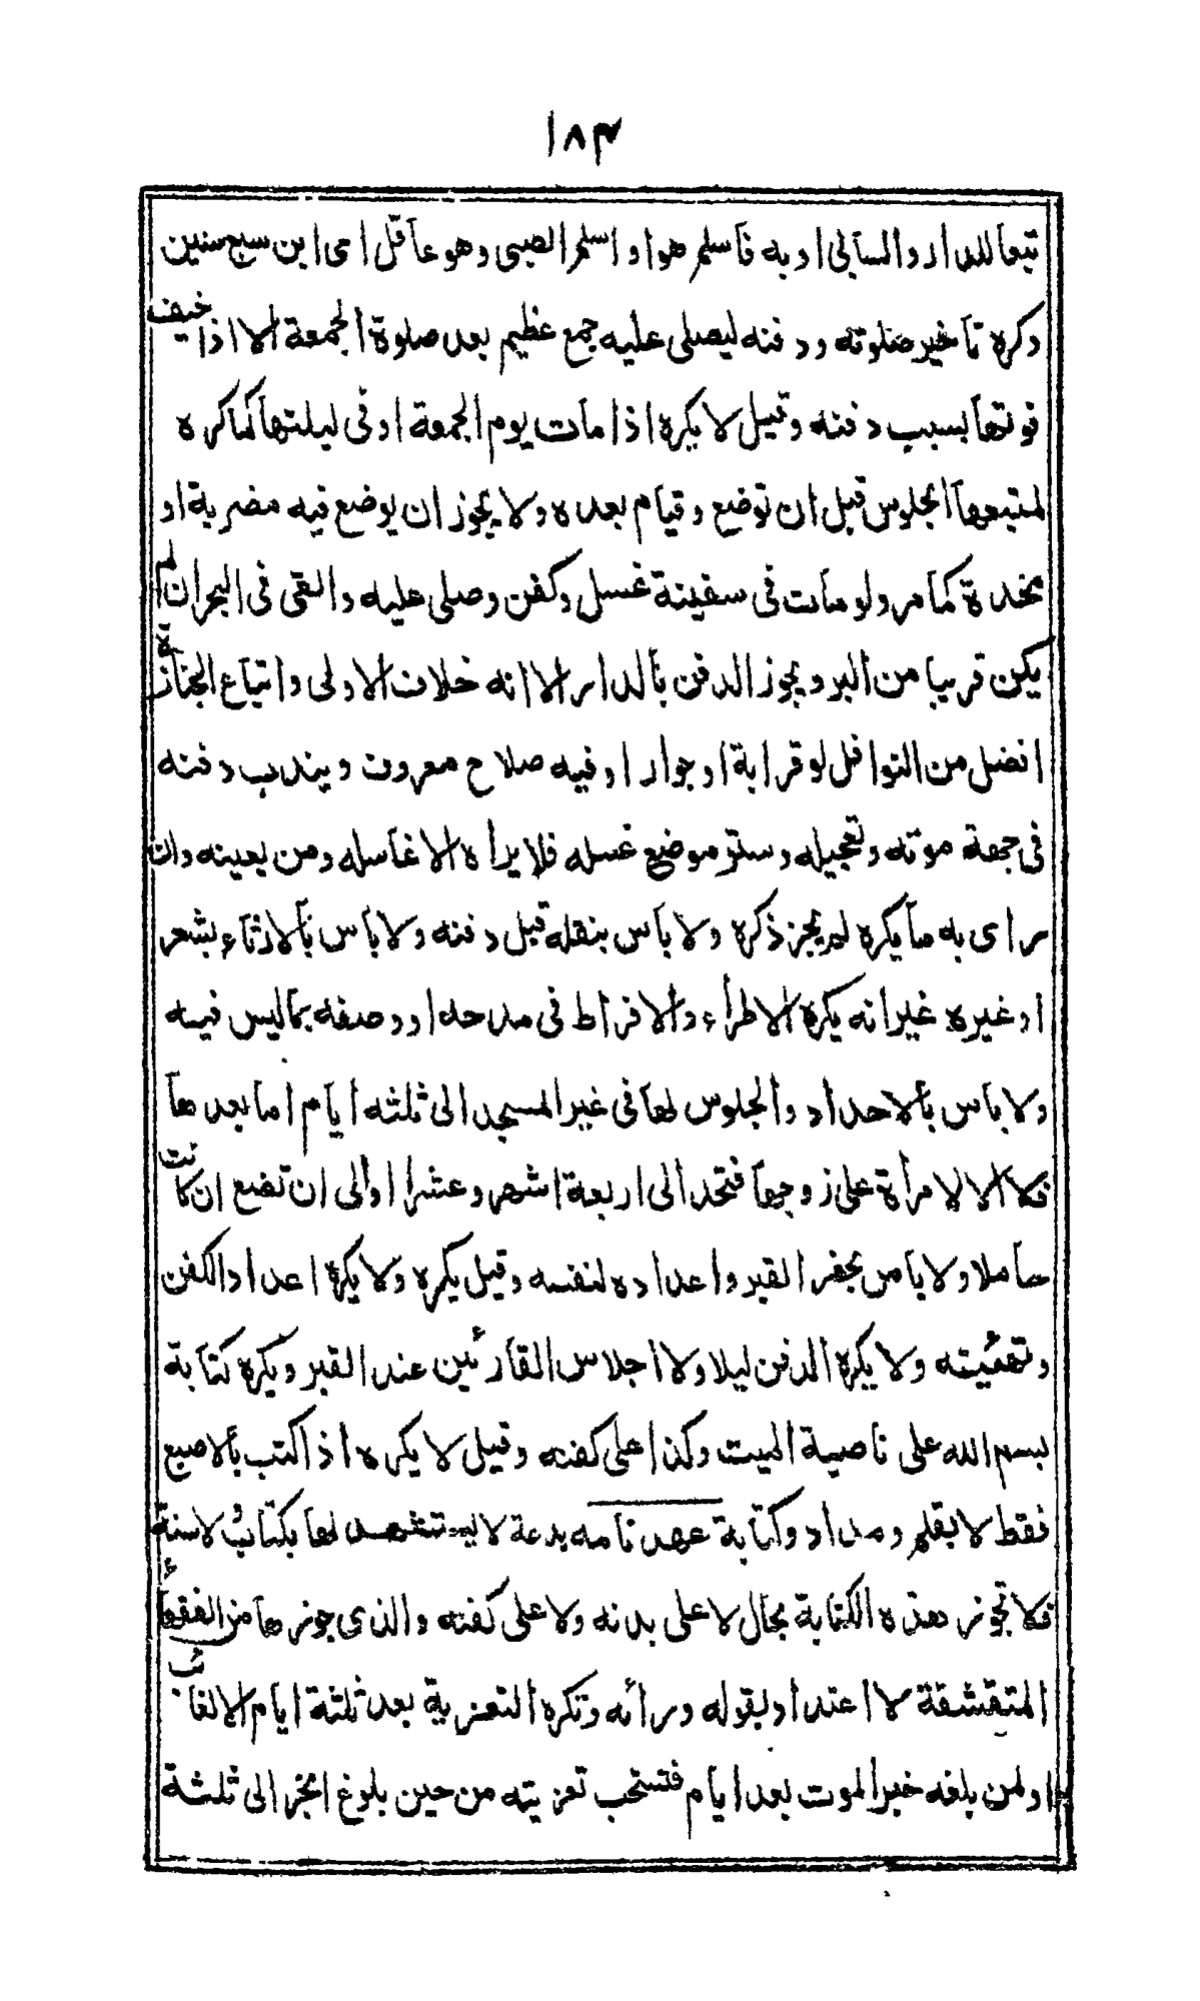 ۱۸۴
تبعا للدار او السابی او به فاسلم هو او اسلم الصبی وهو عاقل ای ابن سبع سنین
وکره تاخیر صلوته ودفنه لیصلی علیه جمع عظیم بعد صلوة الجمعة الا اذا خیف
فوتها بسبب دفنه وقیل لا یکره اذا مات یوم الجمعة او فی لیلتها کما کره
لمتبعها الجلوس قبل ان توضع وقیام بعده ولا یجوز ان یوضع فیه مضربة او
مخدة کما مر ولو مات فی سفینة غسل وکفن وصلی علیه والقی فی البحر ان لم
یکن قریبا من البر ویجوز الدفن بالدار الا انه خلاف الاولی واتباع الجنازة
افضل من النوافل لو قرابة او جوار او فیه صلاح معروف ویندب دفنه
فی جهة موته وتعجیله وستر موضع غسله فلا یراه الا غاسله ومن یعینه وان
رای به ما یکره لم یجز ذکره ولا باس بنقله قبل دفنه ولا باس بالارثاء بشعر
او غیره غیر انه یکره الاطراء والافراط فی مدحه او وصفه بما لیس فیه
ولا باس بالاحداد والجلوس لها فی غیر المسجد الی ثلثه ایام اما بعدها
فلا الا لامرأة علی زوجها فتحد الی اربعة اشهر وعشرا او الی ان تضع ان کانت
حاملا ولا باس بحفر القبر واعداده لنفسه وقیل یکره ولا یکره اعداد الکفن
وتهیئته ولا یکره الدفن لیلا ولا اجلاس القارئین عند القبر ویکره کتابة
بسم الله علی ناصیة المیت وکذا علی کفنه وقیل لا یکره اذا کتب بالاصبع
فقط لا بقلم ومداد وکتابة عهد نامه بدعة لا یستشهد لها بکتاب ولا سنة
فلا تجوز هذه الکتابة بحال لا علی بدنه ولا علی کفنه والذی جوزها من الفقهاء
المتقشفة لا اعتداد بقوله ورأئه وتکره التعزیة بعد ثلثة ایام الا لغائب
او لمن بلغه خبر الموت بعد ایام فتستحب تعزیته من حین بلوغ الخبر الی ثلثة